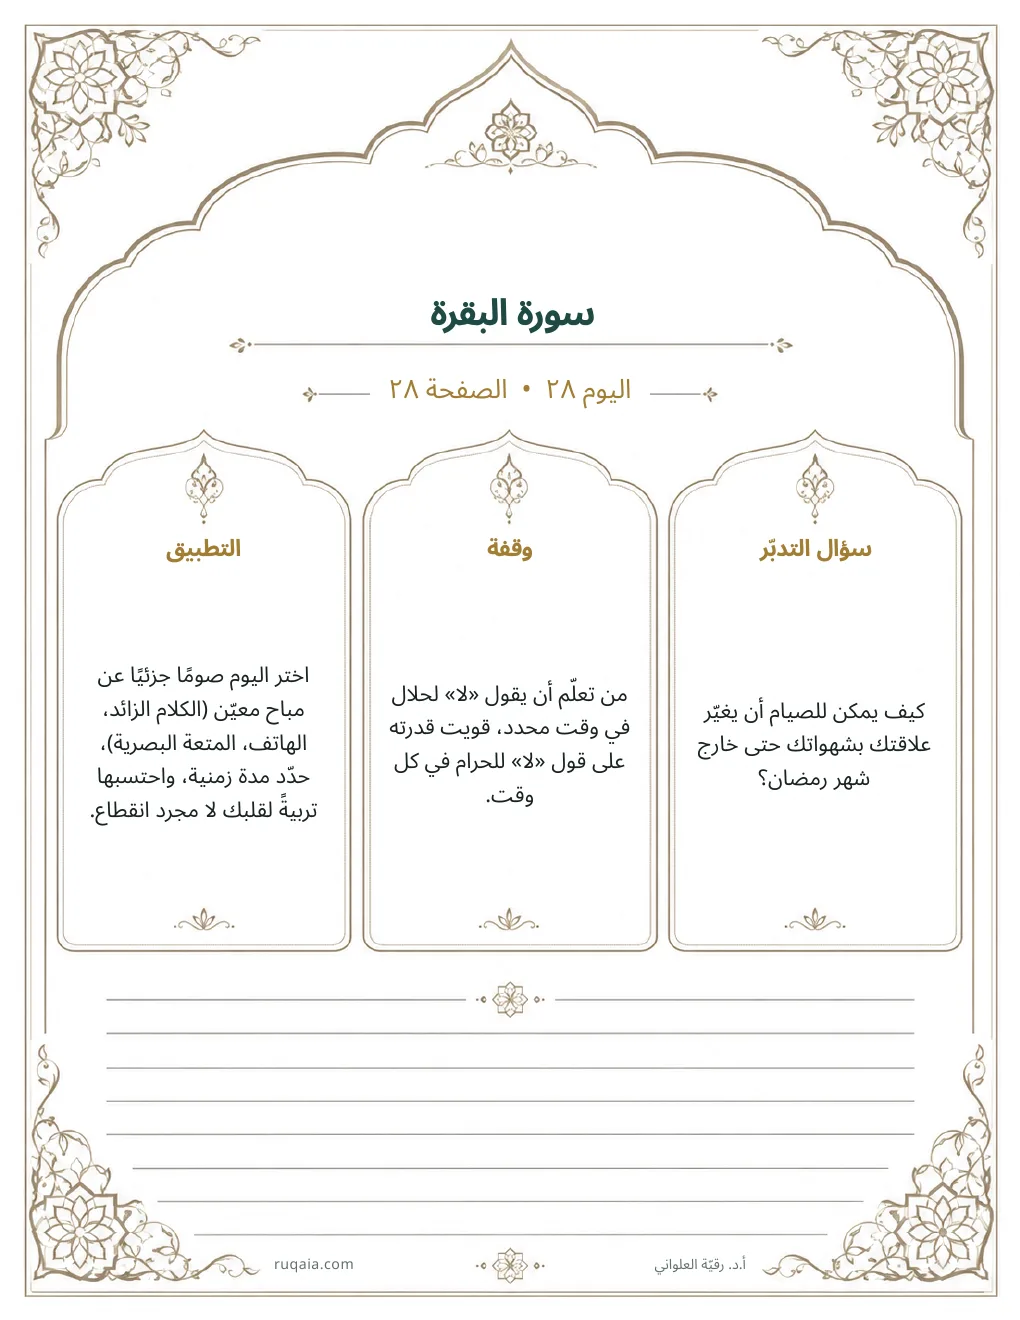 سورة البقرة
اليوم ٢٨ • الصفحة ٢٨
سؤال التدبّر
كيف يمكن للصيام أن يغيّر
علاقتك بشهواتك حتى خارج
شهر رمضان؟
وقفة
من تعلّم أن يقول «لا» لحلال
في وقت محدد، قويت قدرته
على قول «لا» للحرام في كل
وقت.
التطبيق
اختر اليوم صومًا جزئيًا عن
مباح معيّن (الكلام الزائد،
الهاتف، المتعة البصرية)،
حدّد مدة زمنية، واحتسبها
تربيةً لقلبك لا مجرد انقطاع.
أ.د. رقيّة العلواني
ruqaia.com